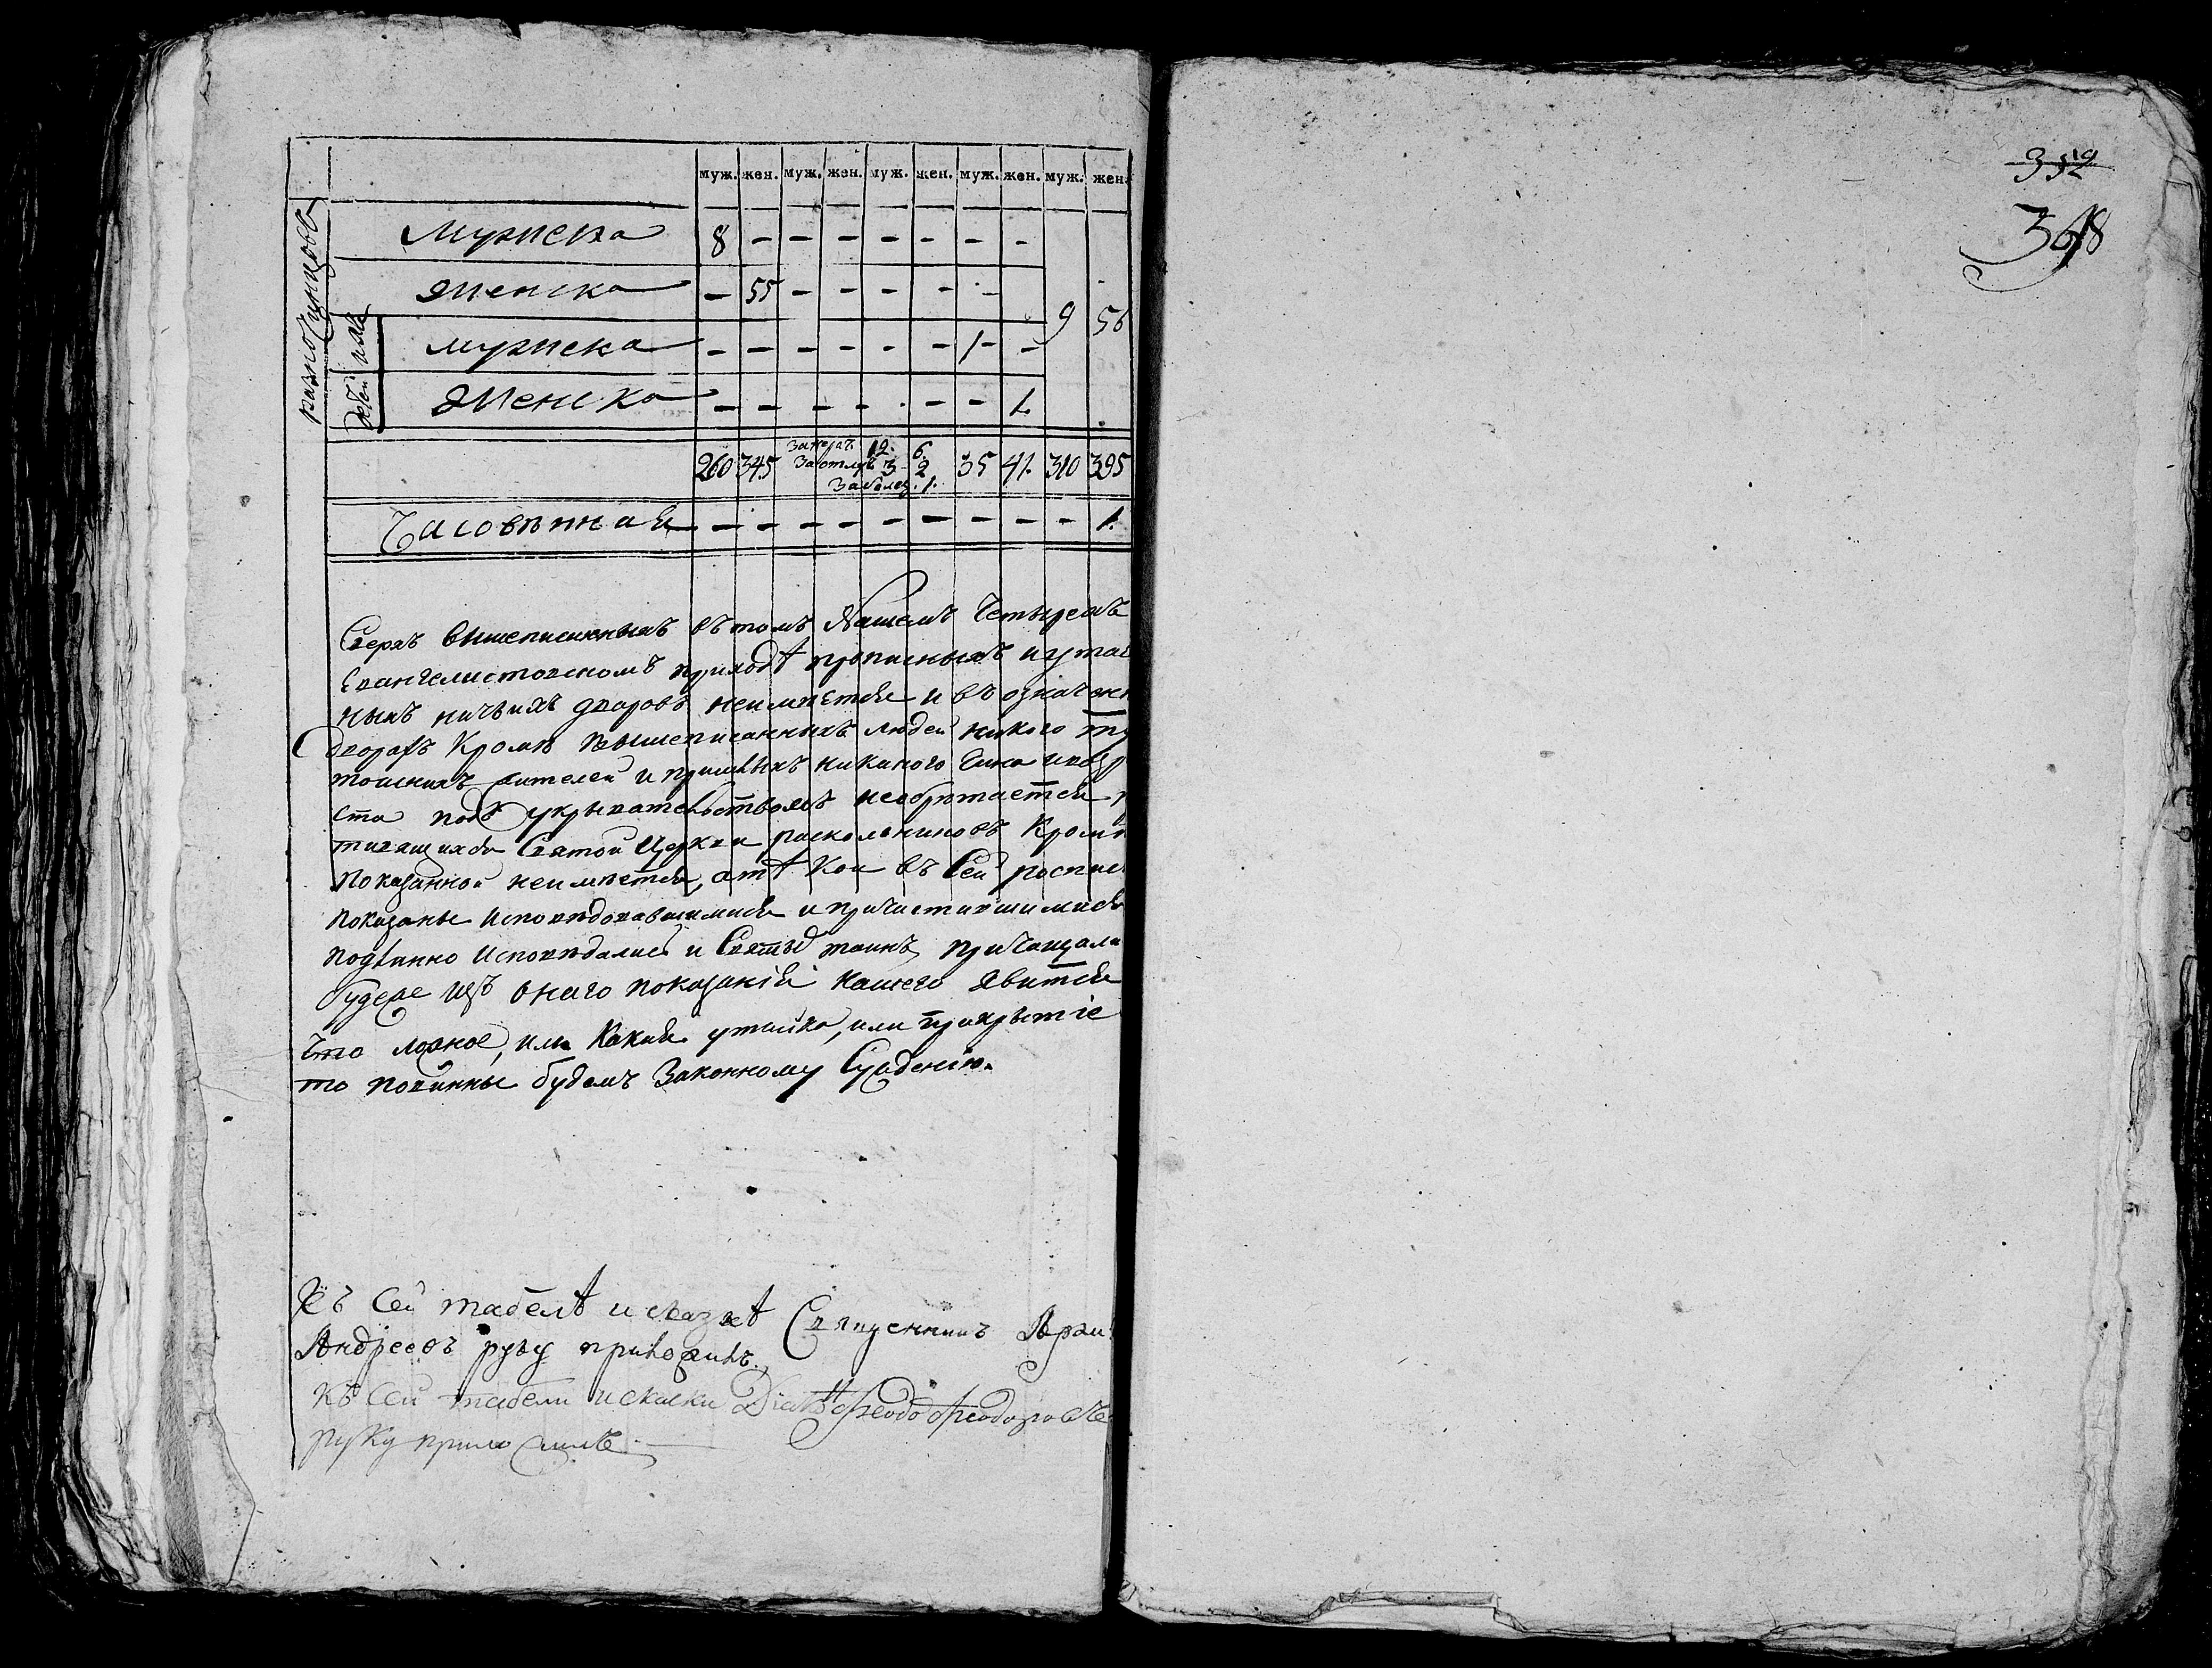 муж. жен. муж. жен. муж. жен. муж. жен. муж. жен.
разночинцовъ
мужеска 8 - - - - - - -
женска - 55 - - - - - -
9 56
дѣтей ихъ
мужеска - - - - - - 1 -
женска - - - - - - - 1.
260 345 35 41. 310 395
12. 6.
За отлуч 3 - 2
За болез. 1.
Часовенная - - - - - - - - - 1.
Сверхъ вышеписанныхъ въ томъ нашемъ Четырехъ
Евангелистовскомъ приходѣ прописныхъ и утаен
ныхъ ничьихъ дворовъ неимѣется и въ означен
дворахъ кромѣ вышеписанныхъ людей никого ту
тошнихъ жителей и пришлыхъ никакого чина и возр
ста подъ укрывательствомъ необрѣтается
тивящихся Святой Церкви раскольниковъ кромѣ
показанной неимѣется, а кои въ сей роспис
показаны исповѣдовавшимися и причастившимися
подлинно исповѣдались и Святыхъ таинъ причащали
будеже изъ онаго показанія нашего явится
что ложное, или какая утайка, или прикрытіе
то повинны будемъ Законному Сужденію.
Къ сей табелѣ и сказкѣ Священникъ
Андреевъ руку приложилъ.
къ сей табели и скаски Дiаконъ Феодоръ Феодоровъ
руку приложилъ
352
348